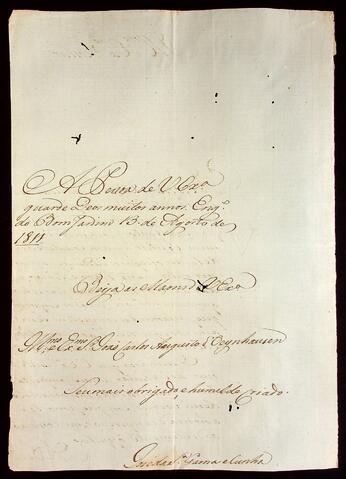 A Pessoa de V. Exª.
guarde Deos muitos annos. Eng.º
do Bom Jardim 13 de Agosto de
1811
Beija as Maons de V. Exª
Illmo. e Exmo. Sr. José Carlos Augusto d'Oeynhausen
Seu mais obrigado, e humilde criado.
Gama e Cunha